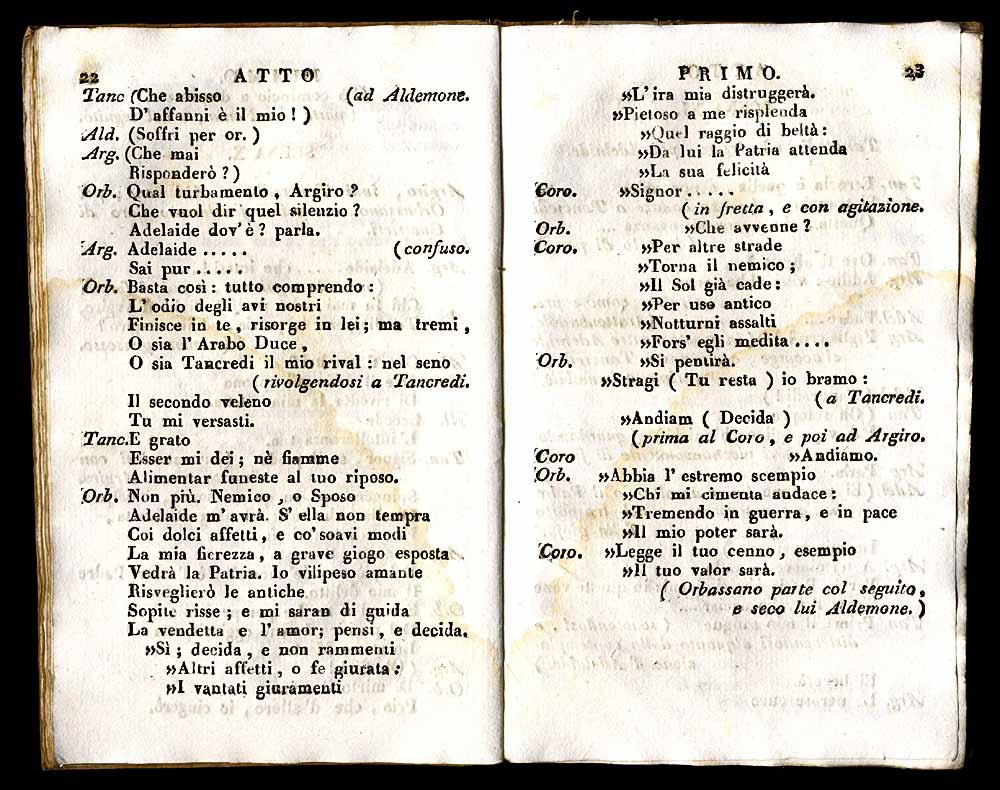 22 ATTO
Tanc (Che abisso (ad Aldemone.
D' affanni è il mio ! )
Ald. (Soffri per or. )
Arg. (Che mai
Risponderò ? )
Orb. Qual turbamento, Argiro ?
Che vuol dir quel silenzio ?
Adelaide dov' è ? parla.
Arg. Adelaide ..... (confuso.
Sai pur .....
Orb. Basta così : tutto comprendo :
L' odio degli avi nostri
Finisce in te, risorge in lei ; ma tremi,
O sia l' Arabo Duce,
O sia Tancredi il mio rival : nel seno
(rivolgendosi a Tancredi.
Il secondo veleno
Tu mi versasti.
Tanc. E grato
Esser mi dei ; nè fiamme
Alimentar funeste al tuo riposo.
Orb. Non più. Nemico, o Sposo
Adelaide m' avrà. S' ella non tempra
Coi dolci affetti, e co' soavi modi
La mia fierezza, a grave giogo esposta
Vedrà la Patria. Io vilipeso amante
Risveglierò le antiche
Sopite risse ; e mi saran di guida
La vendetta e l' amor ; pensi, e decida.
»Sì ; decida, e non rammenti
»Altri affetti, o fe giurata :
»I vantati giuramenti
PRIMO. 23
»L' ira mia distruggerà.
»Pietoso a me risplenda
»Quel raggio di beltà :
»Da lui la Patria attenda
»La sua felicità
Coro. »Signor .....
( in fretta, e con agitazione.
Orb. »Che avvenne ?
Coro. »Per altre strade
»Torna il nemico ;
»Il Sol già cade :
»Per uso antico
»Notturni assalti
»Fors' egli medita ....
Orb. »Si pentirà.
»Stragi ( Tu resta ) io bramo :
(a Tancredi.
»Andiam ( Decida )
(prima al Coro, e poi ad Argiro.
Coro »Andiamo.
Orb. »Abbia l' estremo scempio
»Chi mi cimenta audace :
»Tremendo in guerra, e in pace
»Il mio poter sarà.
Coro. »Legge il tuo cenno, esempio
»Il tuo valor sarà.
( Orbassano parte col seguito,
e seco lui Aldemone. )